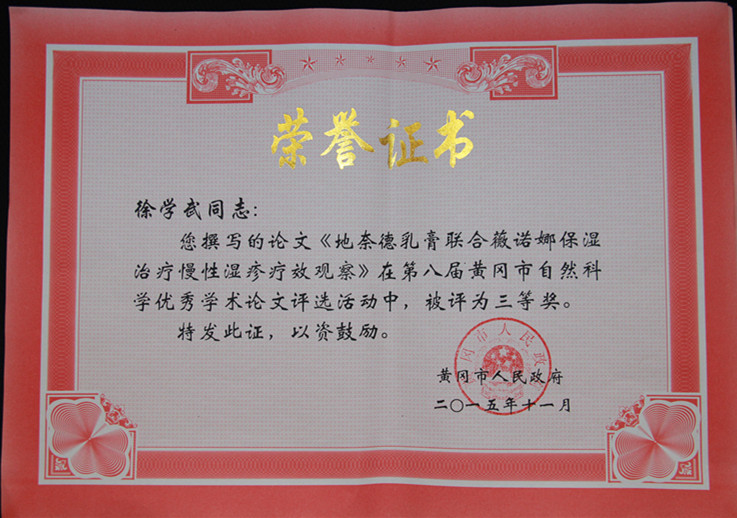 荣誉证书
徐学武同志：
您撰写的论文《地奈德乳膏联合薇诺娜保湿
治疗慢性湿疹疗效观察》在第八届黄冈市自然科
学优秀学术论文评选活动中，被评为三等奖。
特发此证，以资鼓励。
黄冈市人民政府
黄冈市人民政府
二〇一五年十一月